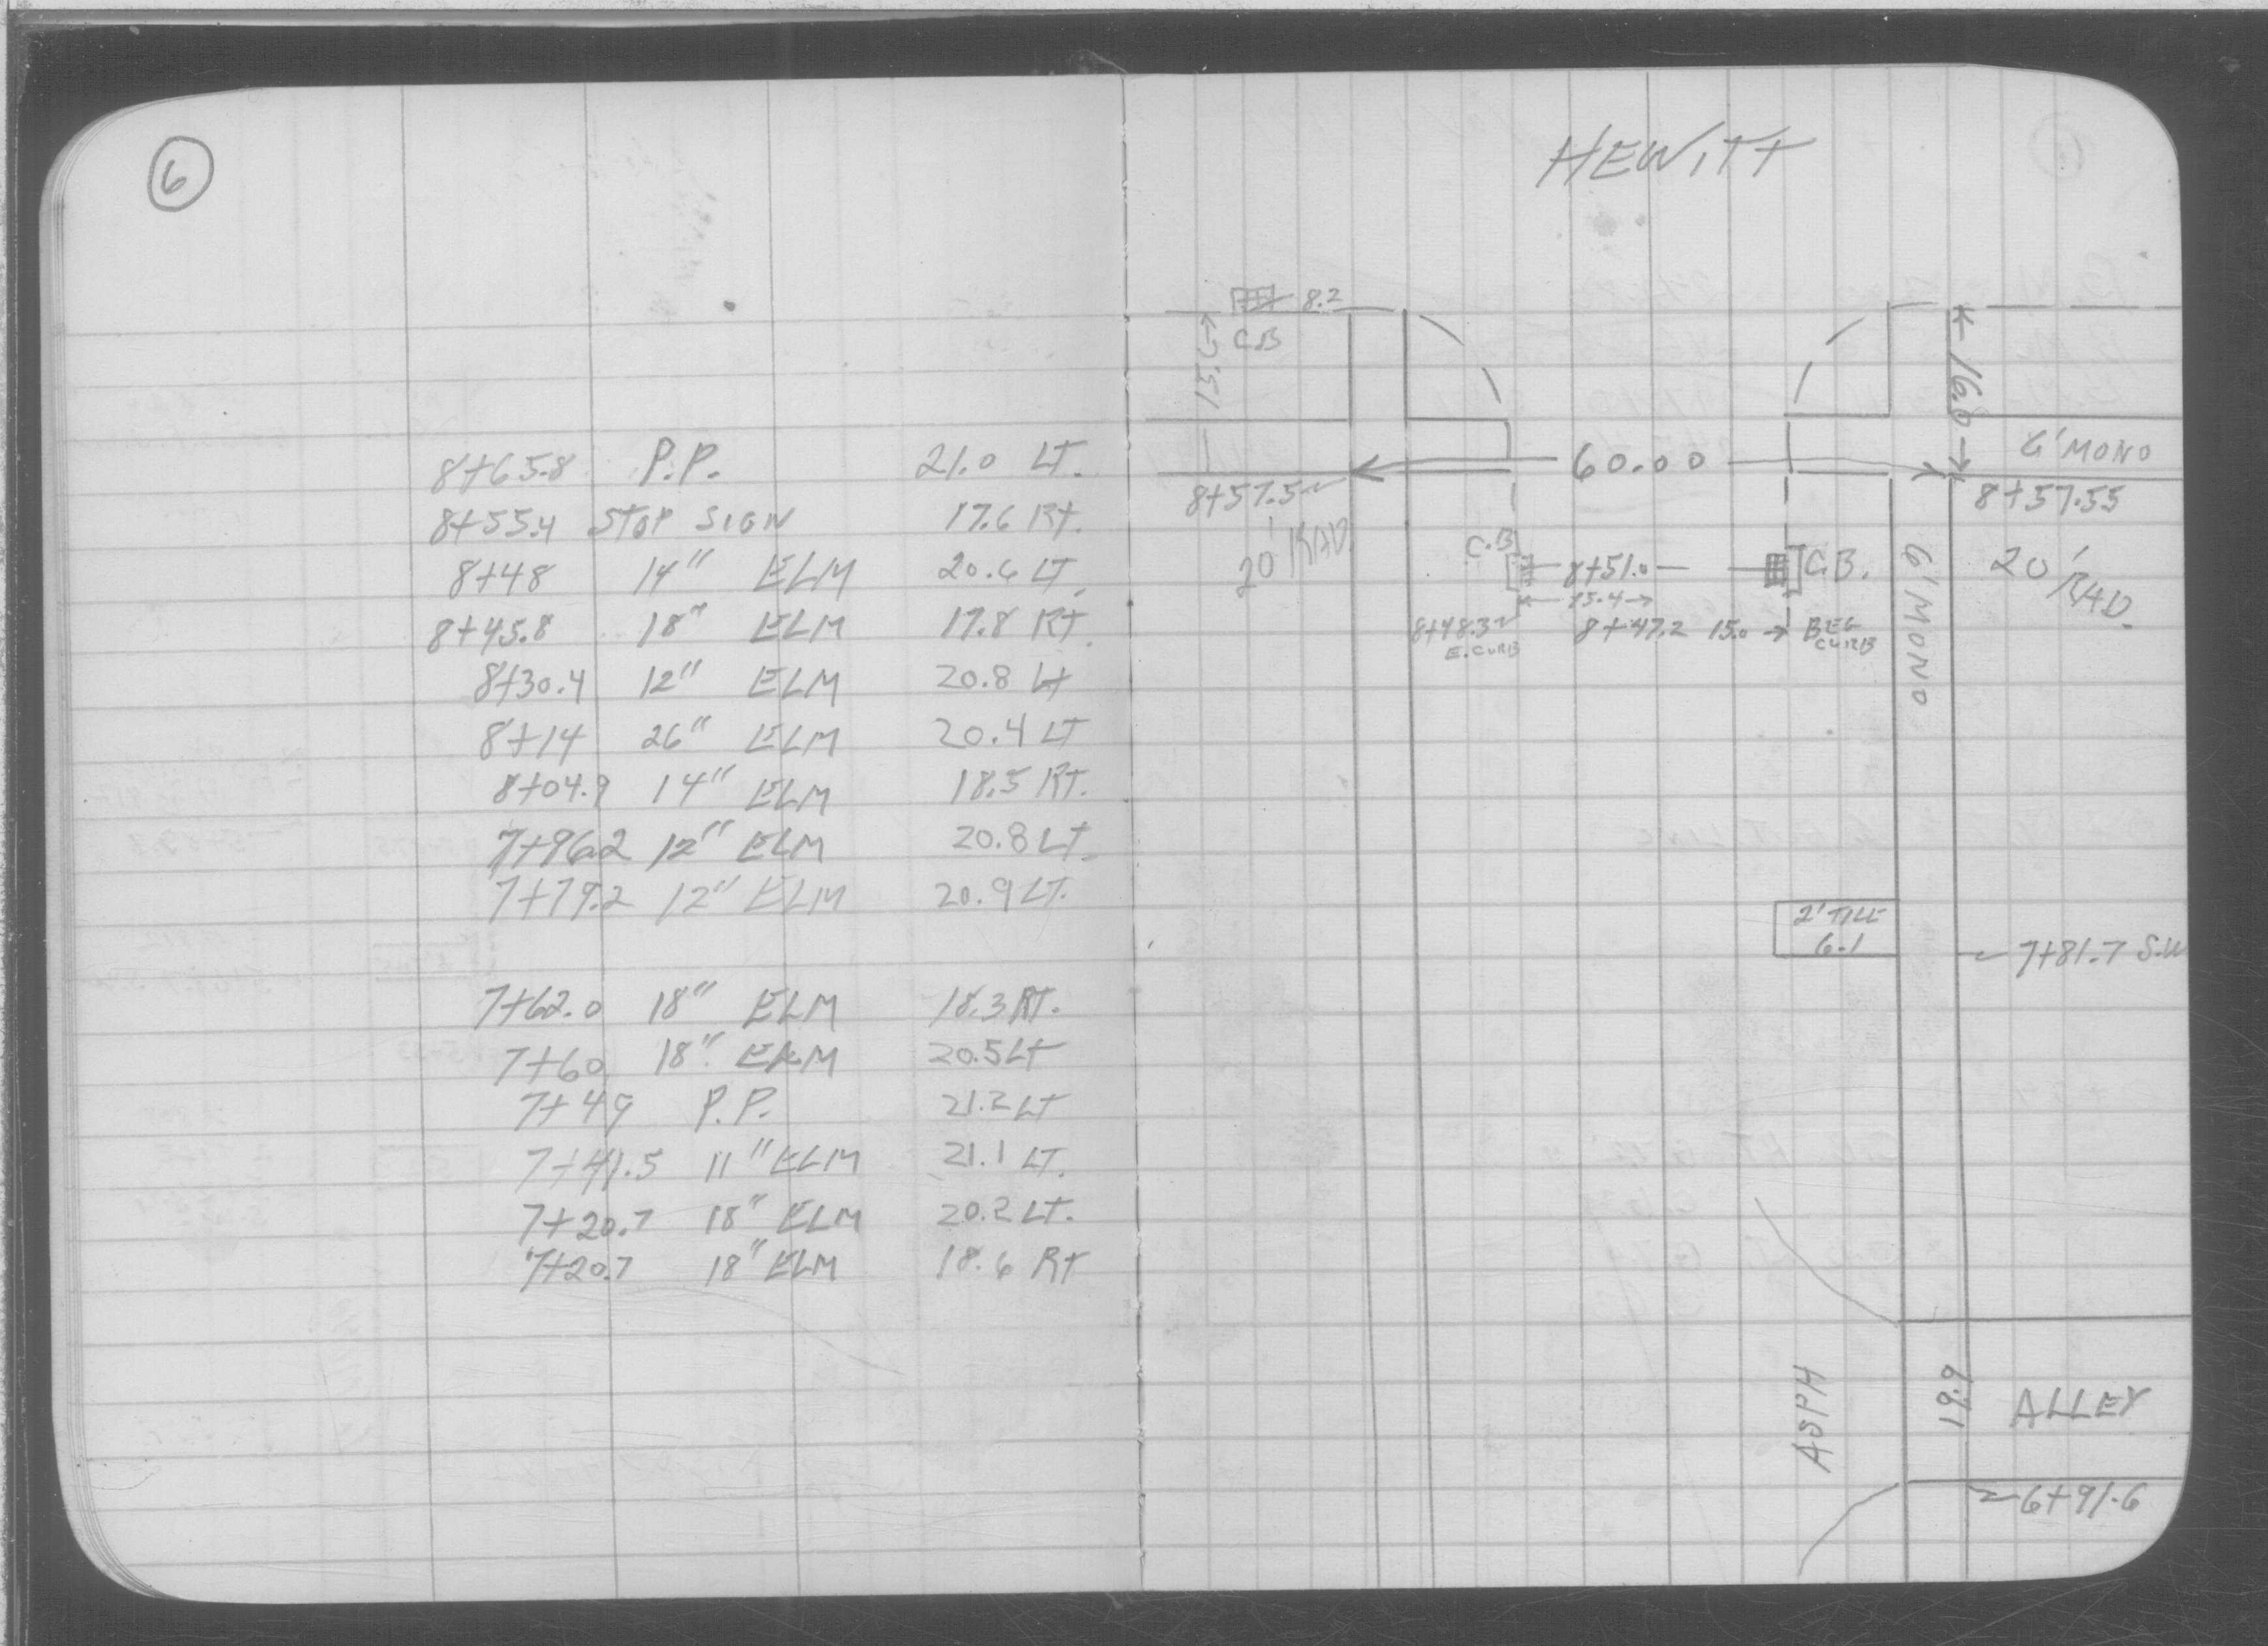 6
8+65.8 P.P. 21.0 LT.
8+55.4 STOP SIGN 17.6 RT.
8+48 14" ELM 20.6 LT.
8+45.8 18" ELM 17.8 RT.
8+30.4 12" ELM 20.8 LT
8+14 26" ELM 20.4 LT
8+04.9 14" ELM 18.5 RT.
7+96.2 12" ELM 20.8 LT.
7+79.2 12" ELM 20.9 LT.
7+62.0 18" ELM 18.3 RT.
7+60 18" ELM 20.5 LT
7+49 P.P. 21.2 LT
7+41.5 11" ELM 21.1 LT.
7+20.7 18" ELM 20.2 LT.
7+20.7 18" ELM 18.6 RT
HEWITT
8.2
C.B
16.0
60.00
6' MONO
8+57.5
8+57.55
20' RAD.
C.B
8+51.0
C.B.
20' RAD.
15.4
8+48.3
E. CURB
8+47.2 15.0 → BEG
CURB
6' MONO
2' TILE
6.1
7+81.7 S.W
ASPH
19.9
ALLEY
6+91.6